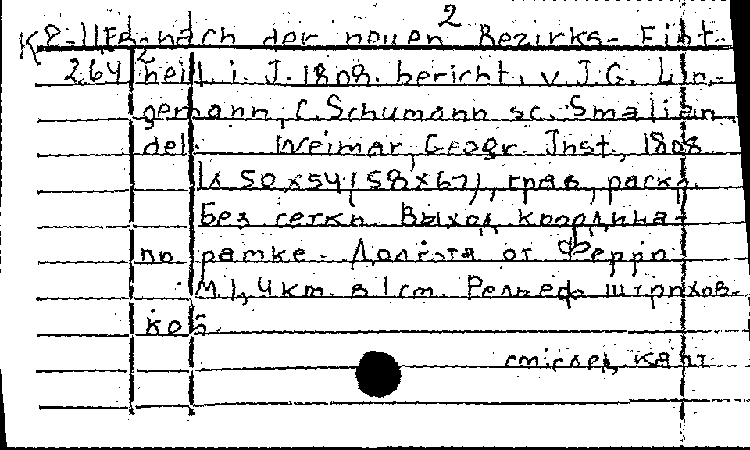 2
К 8-ЦЕв nach der neuen Bezirks-Eint-
264 2 heil. i. J. 1808. bericht. v. J.G. Lin-
gemann, C. Schumann sc. Smalian
del. Weimar, Geogr. Inst., 1808
1л 50x54 (58x67), грав, раскр.
без сетки. Выход координа-
по рамке. Долгота от Ферро
М 1,4 km в 1 cm. Рельеф штрихов-
кой
см. след. карт